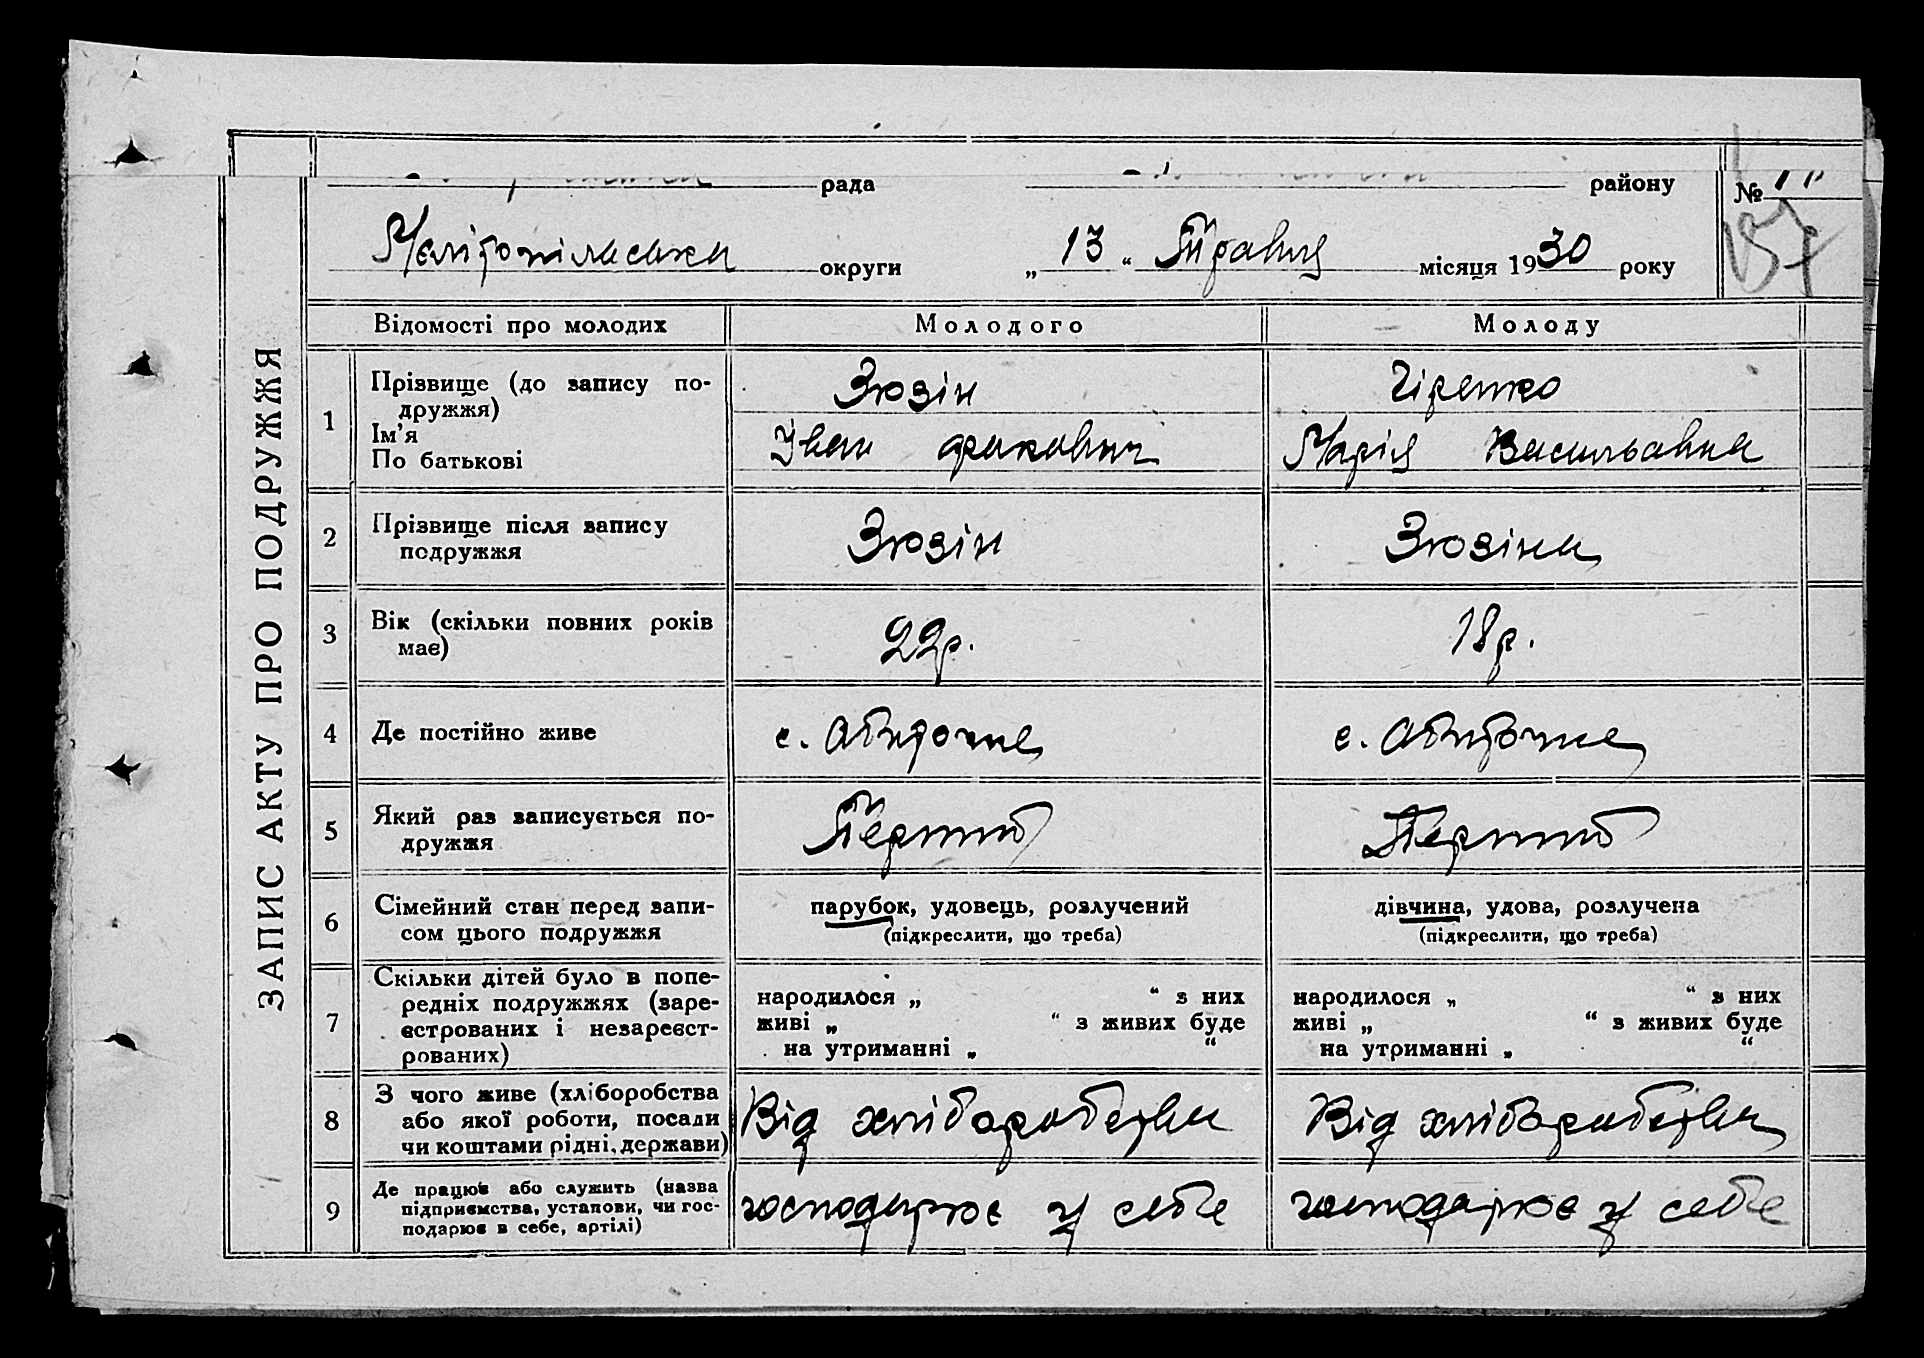 ЗАПИС АКТУ ПРО ПОДРУЖЖЯ
рада району №
Мелітопільська округи „ 13 “ Травня місяця 1930 року 157
Відомості про молодих Молодого Молоду
1 Прізвище (до запису по-
дружжя)
Ім’я
По батькові
Зюзін
Іван
Гіренко
Марія Васильовна
2 Прізвище після запису
подружжя
Зюзін
Зюзіна
3 Вік (скільки повних років
має)
22р.
18р.
4 Де постійно живе
с. Обиточне
с. Обиточне
5 Який раз записується по-
дружжя
Перший
Перший
6 Сімейний стан перед запи-
сом цього подружжя
парубок, удовець, розлучений
(підкреслити, що треба)
дівчина, удова, розлучена
(підкреслити, що треба)
7 Скільки дітей було в попе-
редніх подружжях (заре-
єстрованих і незареєст-
рованих)
народилося „ “ з них
живі „ “ з живих буде
на утриманні „ “
народилося „ “ з них
живі „ “ з живих буде
на утриманні „ “
8 З чого живе (хліборобства
або якої роботи, посади
чи коштами рідні, держави)
Від хліборобства
Від хліборобства
9 Де працює або служить (назва
підприємства, установи, чи гос-
подарює в себе, артілі)
господарює у себе
господарює у себе